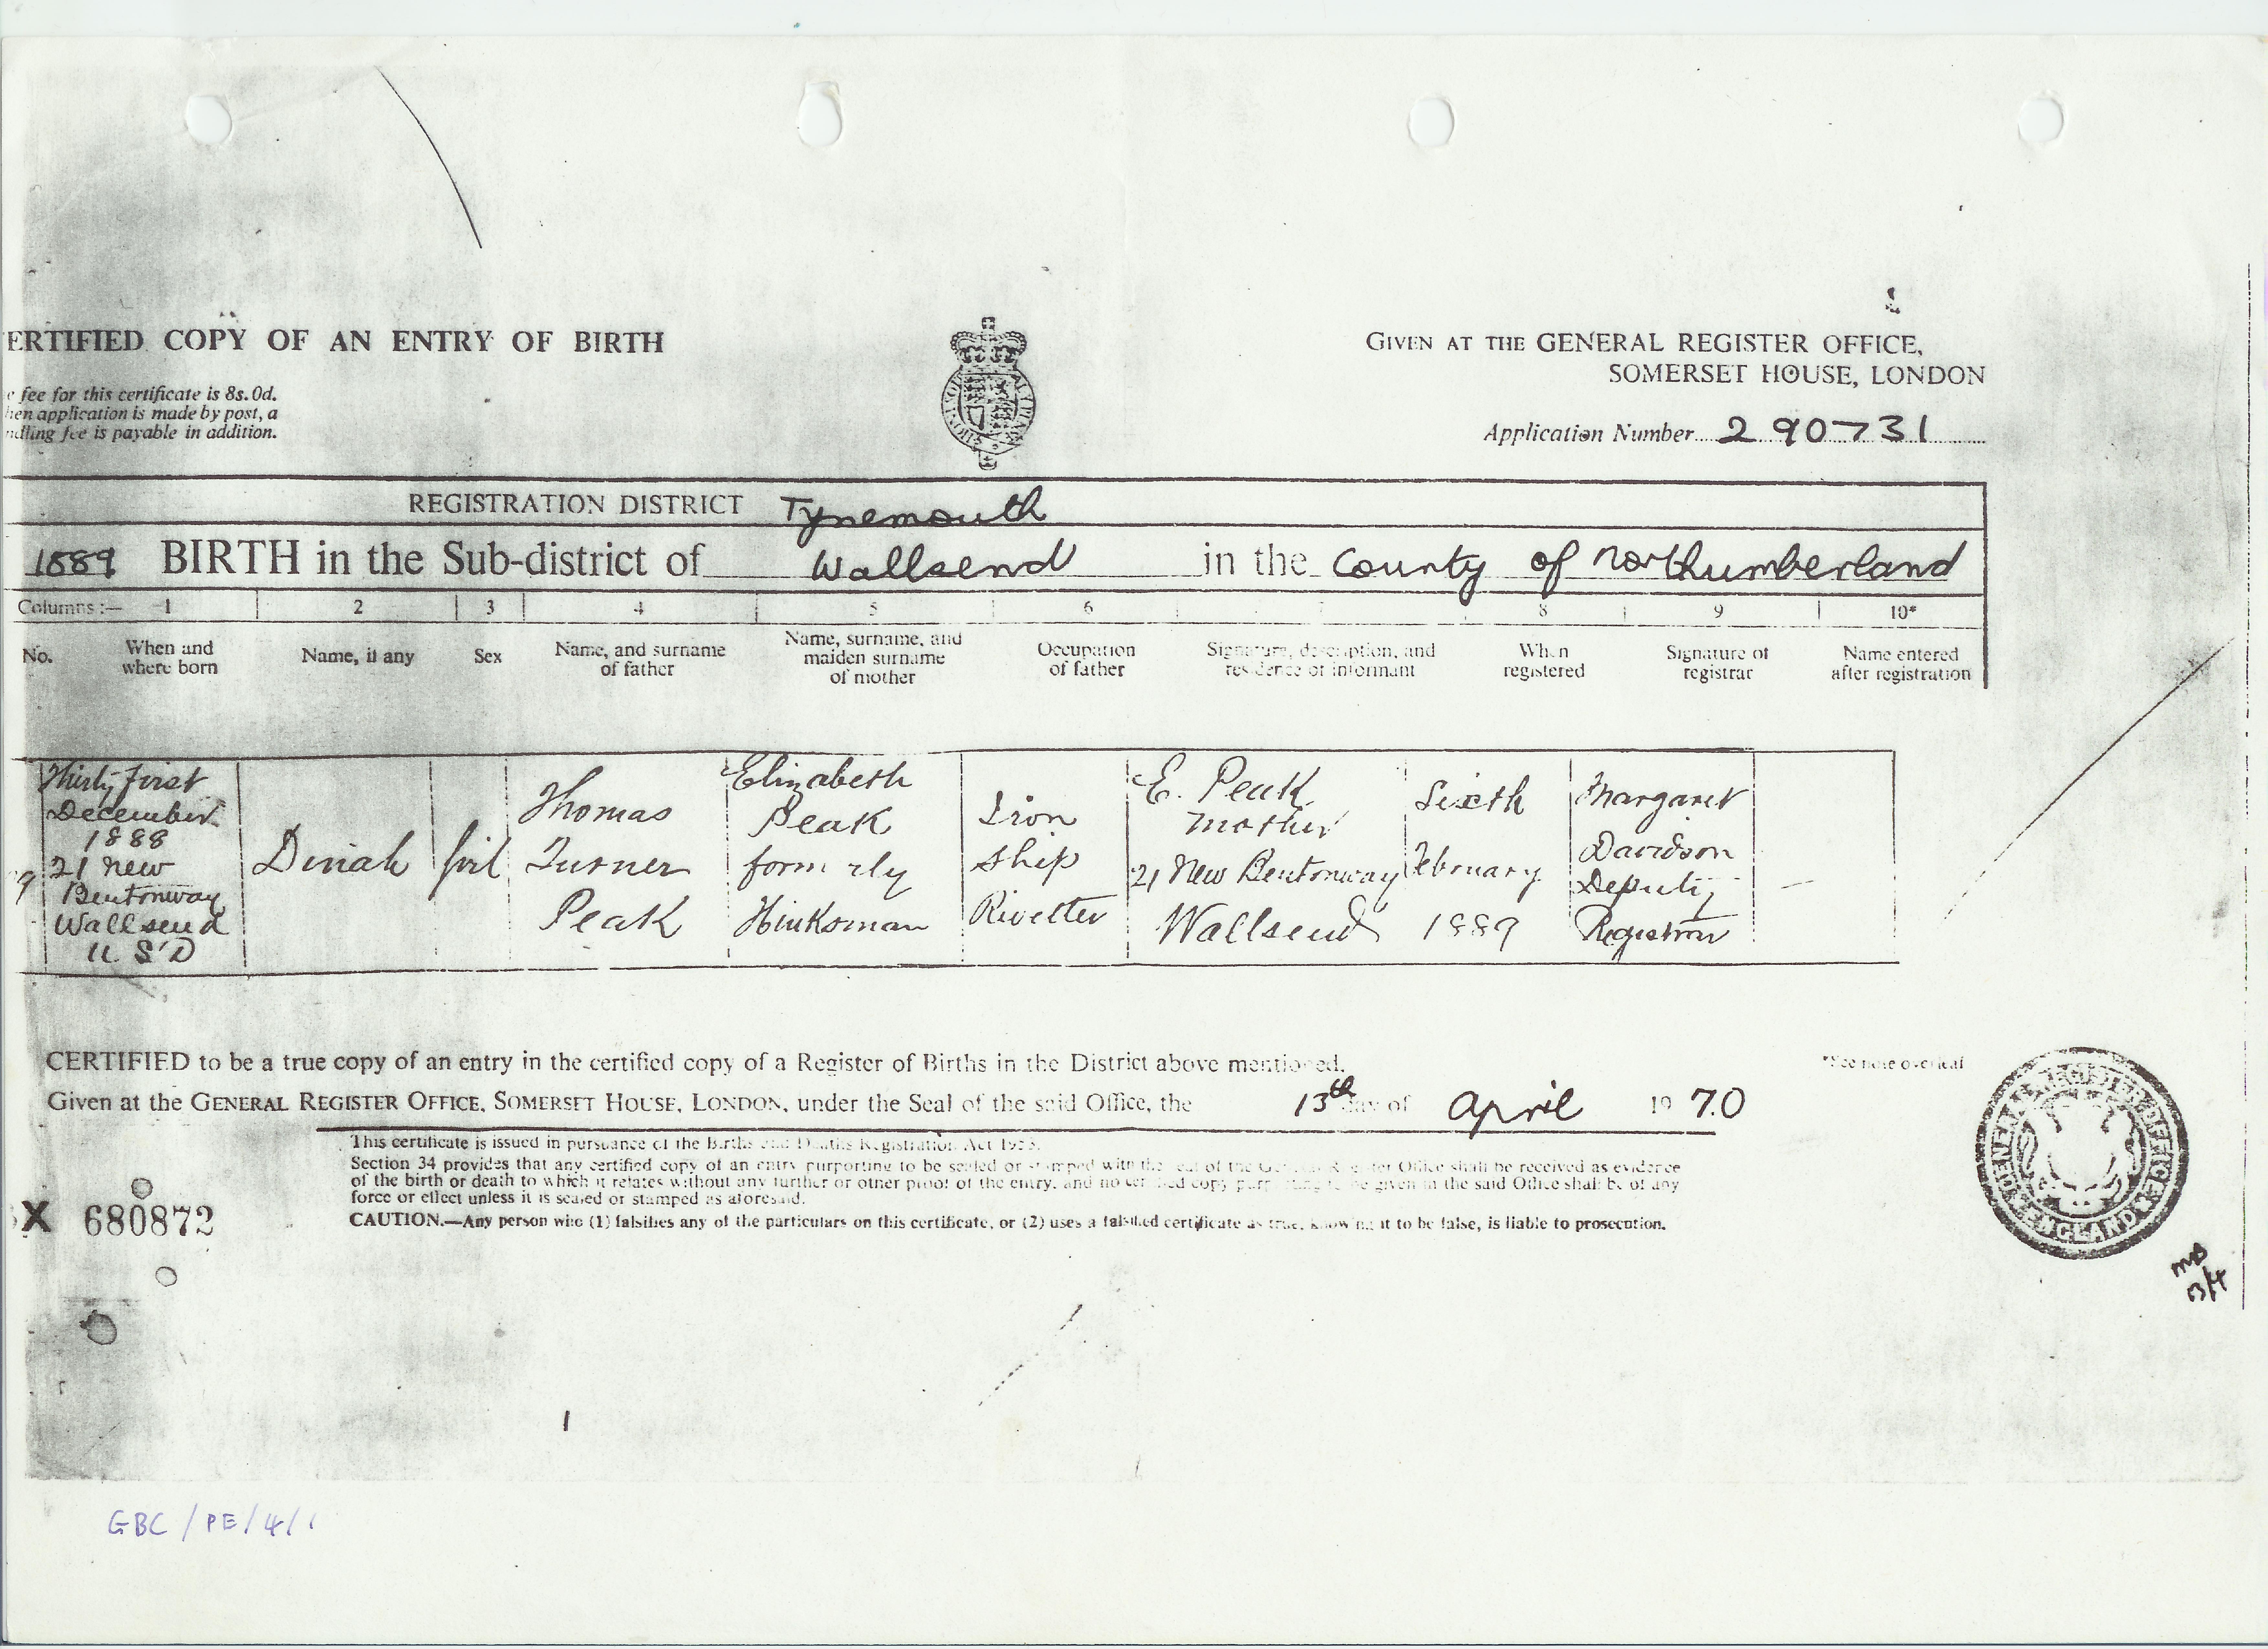 ERTIFIED COPY OF AN ENTRY OF BIRTH
e fee for this certificate is 8s. 0d.
hen application is made by post, a
ndling fee is payable in addition.
GIVEN AT THE GENERAL REGISTER OFFICE,
SOMERSET HOUSE, LONDON
Application Number 290731
REGISTRATION DISTRICT Tynemouth
1889 BIRTH in the Sub-district of Wallsend in the County of Northumberland
Columns :— 1 2 3 4 5 6 8 9 10*
No.
When and
where born
Name, if any
Sex
Name, and surname
of father
Name, surname, and
maiden surname
of mother
Occupation
of father
Signature, description, and
residence of informant
When
registered
Signature of
registrar
Name entered
after registration
9
Thirty first
December
1888
21 New
Bentonway
Wallsend
U.S.D
Dinah
Girl
Thomas
Turner
Peak
Elizabeth
Peak
formerly
Hinksman
Iron
Ship
Rivetter
E. Peak
Mother
21 New Bentonway
Wallsend
Sixth
February
1889
Margaret
Davidson
Deputy
Registrar
—
CERTIFIED to be a true copy of an entry in the certified copy of a Register of Births in the District above mentioned.
*See note overleaf
Given at the GENERAL REGISTER OFFICE, SOMERSET HOUSE, LONDON, under the Seal of the said Office, the 13th day of April 1970
This certificate is issued in pursuance of the Births and Deaths Registration Act 1953.
Section 34 provides that any certified copy of an entry purporting to be sealed or stamped with the seal of the General Register Office shall be received as evidence
of the birth or death to which it relates without any further or other proof of the entry, and no certified copy purporting to be given in the said Office shall be of any
force or effect unless it is sealed or stamped as aforesaid.
CAUTION.—Any person who (1) falsifies any of the particulars on this certificate, or (2) uses a falsified certificate as true, knowing it to be false, is liable to prosecution.
X 680872
GENERAL REGISTER OFFICE
ENGLAND
13/4
GBC/PE/4/1